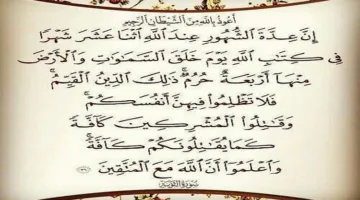 أَعُوذُ بِاللهِ مِنَ الشَّيْطَانِ الرَّجِيمِ
إِنَّ عِدَّةَ الشُّهُورِ عِنْدَ اللهِ اثْنَا عَشَرَ شَهْرًا
فِي كِتَابِ اللهِ يَوْمَ خَلَقَ السَّمٰوَاتِ وَالْأَرْضَ
مِنْهَا أَرْبَعَةٌ حُرُمٌ ذٰلِكَ الدِّينُ الْقَيِّمُ
فَلَا تَظْلِمُوا فِيهِنَّ أَنْفُسَكُمْ
وَقَاتِلُوا الْمُشْرِكِينَ كَافَّةً
كَمَا يُقَاتِلُونَكُمْ كَافَّةً
وَاعْلَمُوا أَنَّ اللهَ مَعَ الْمُتَّقِينَ ٣٦
سُورَةُ التَّوْبَةِ